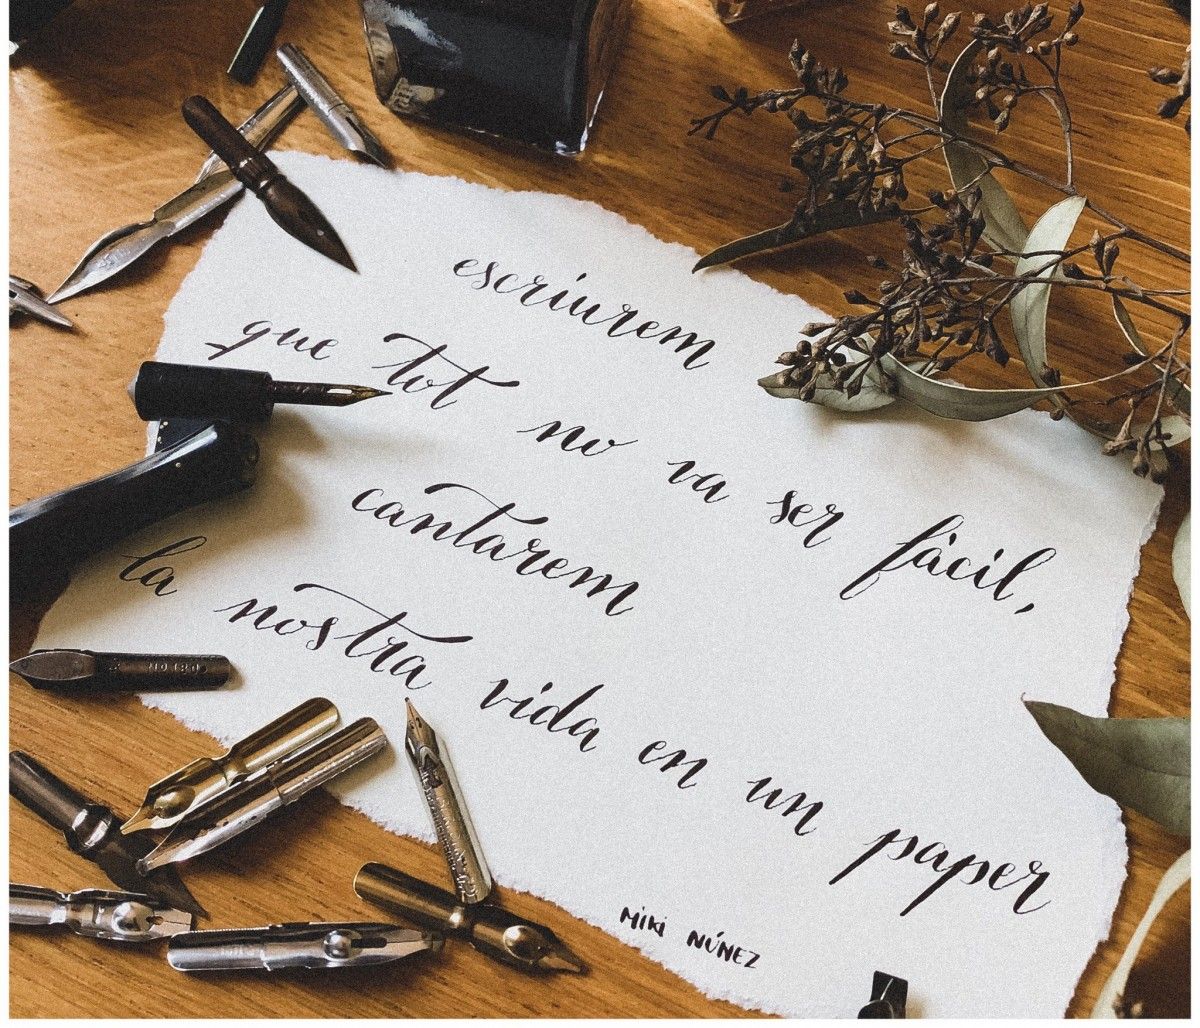 escriurem
que tot no va ser fàcil,
cantarem
la nostra vida en un paper
MIKI NÚÑEZ